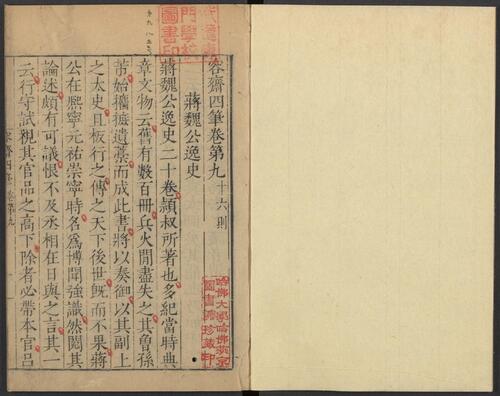 容齋四筆卷第九 十六則
蔣魏公逸史
蔣魏公逸史二十卷潁叔所著也多紀當時典
章文物云舊有數百冊兵火閒盡失之其曾孫
芾始攟摭遺藁而成此書將以奏御以其副上
之太史且板行之傳之天下後世旣而不果蔣
公在熙寧元祐崇寧時名爲博聞強識然閱其
論述頗有可議恨不及丞相在日與之言其一
云行守試視其官品之高下除者必帶本官呂
哈佛大學哈佛燕京
圖書館珍藏印
門學校
圖書印